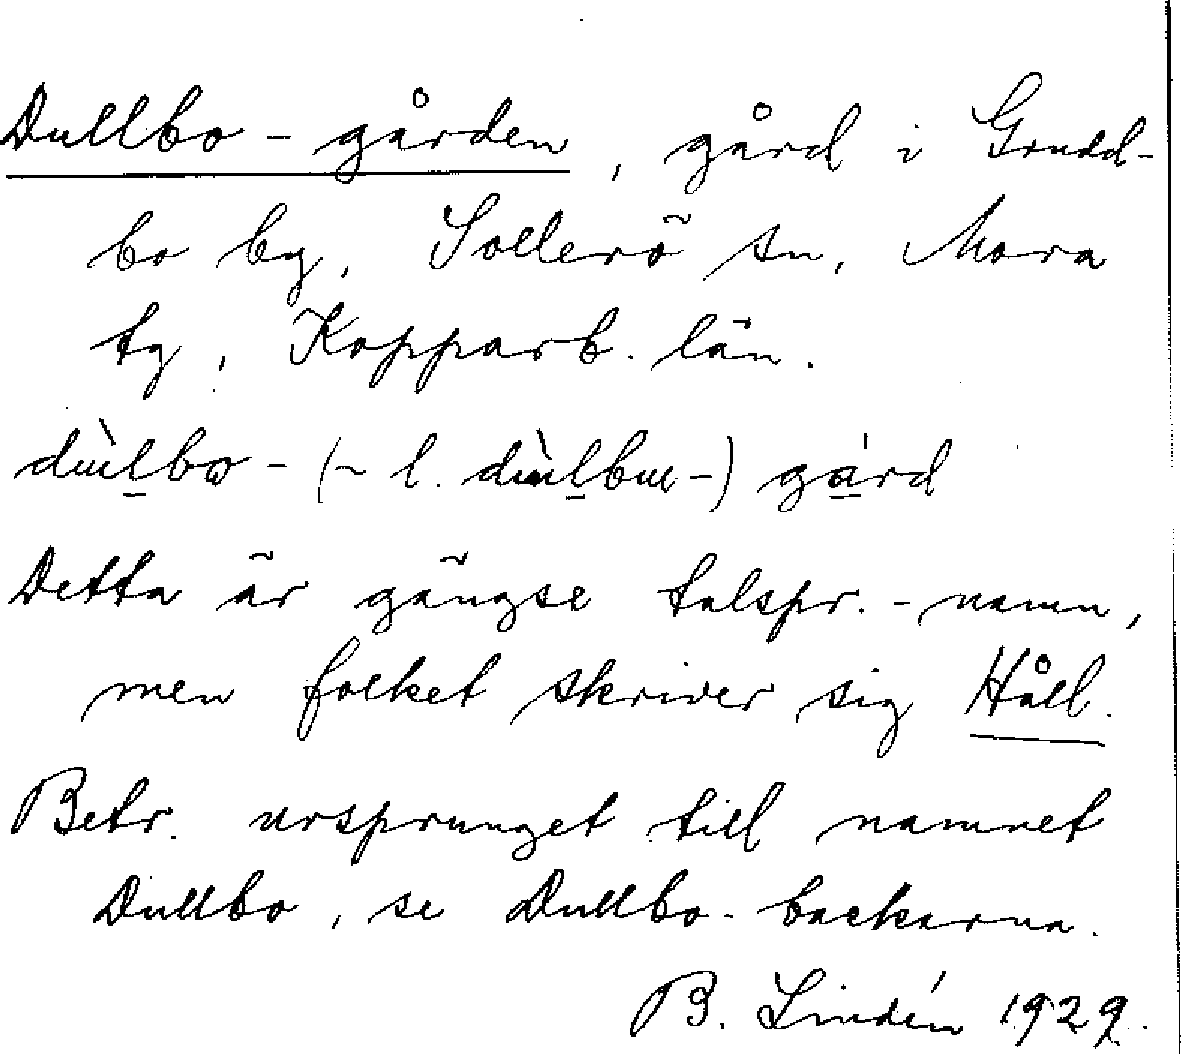 Dullbo-gården, gård i Grudd-
bo by, Sollerö sn, Mora
tg, Kopparb. län.
dùl̠bo- (~ l. dùl̠buɯ-) gá̠rd
Detta är gängse talspr.-namn,
men folket skriver sig Håll.
Betr. ursprunget till namnet
Dullbo, se Dullbo-backarna.
B. Lindén 1929.